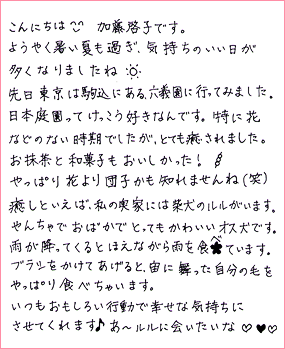 こんにちは 加藤啓子です。
ようやく暑い夏も過ぎ、気持ちのいい日が
多くなりましたね
先日東京は駒込にある、六義園に行ってみました。
日本庭園ってけっこう好きなんです。特に花
などのない時期でしたが、とても癒されました。
お抹茶と和菓子もおいしかった！
やっぱり花より団子かも知れませんね(笑)
癒しといえば、私の実家には柴犬のルルがいます。
やんちゃでおばかでとってもかわいいオス犬です。
雨が降ってくるとほえながら雨を食べています。
ブラシをかけてあげると、宙に舞った自分の毛を
やっぱり食べちゃいます。
いつもおもしろい行動で幸せな気持ちに
させてくれます♪ あ〜ルルに会いたいな ♡♥♡